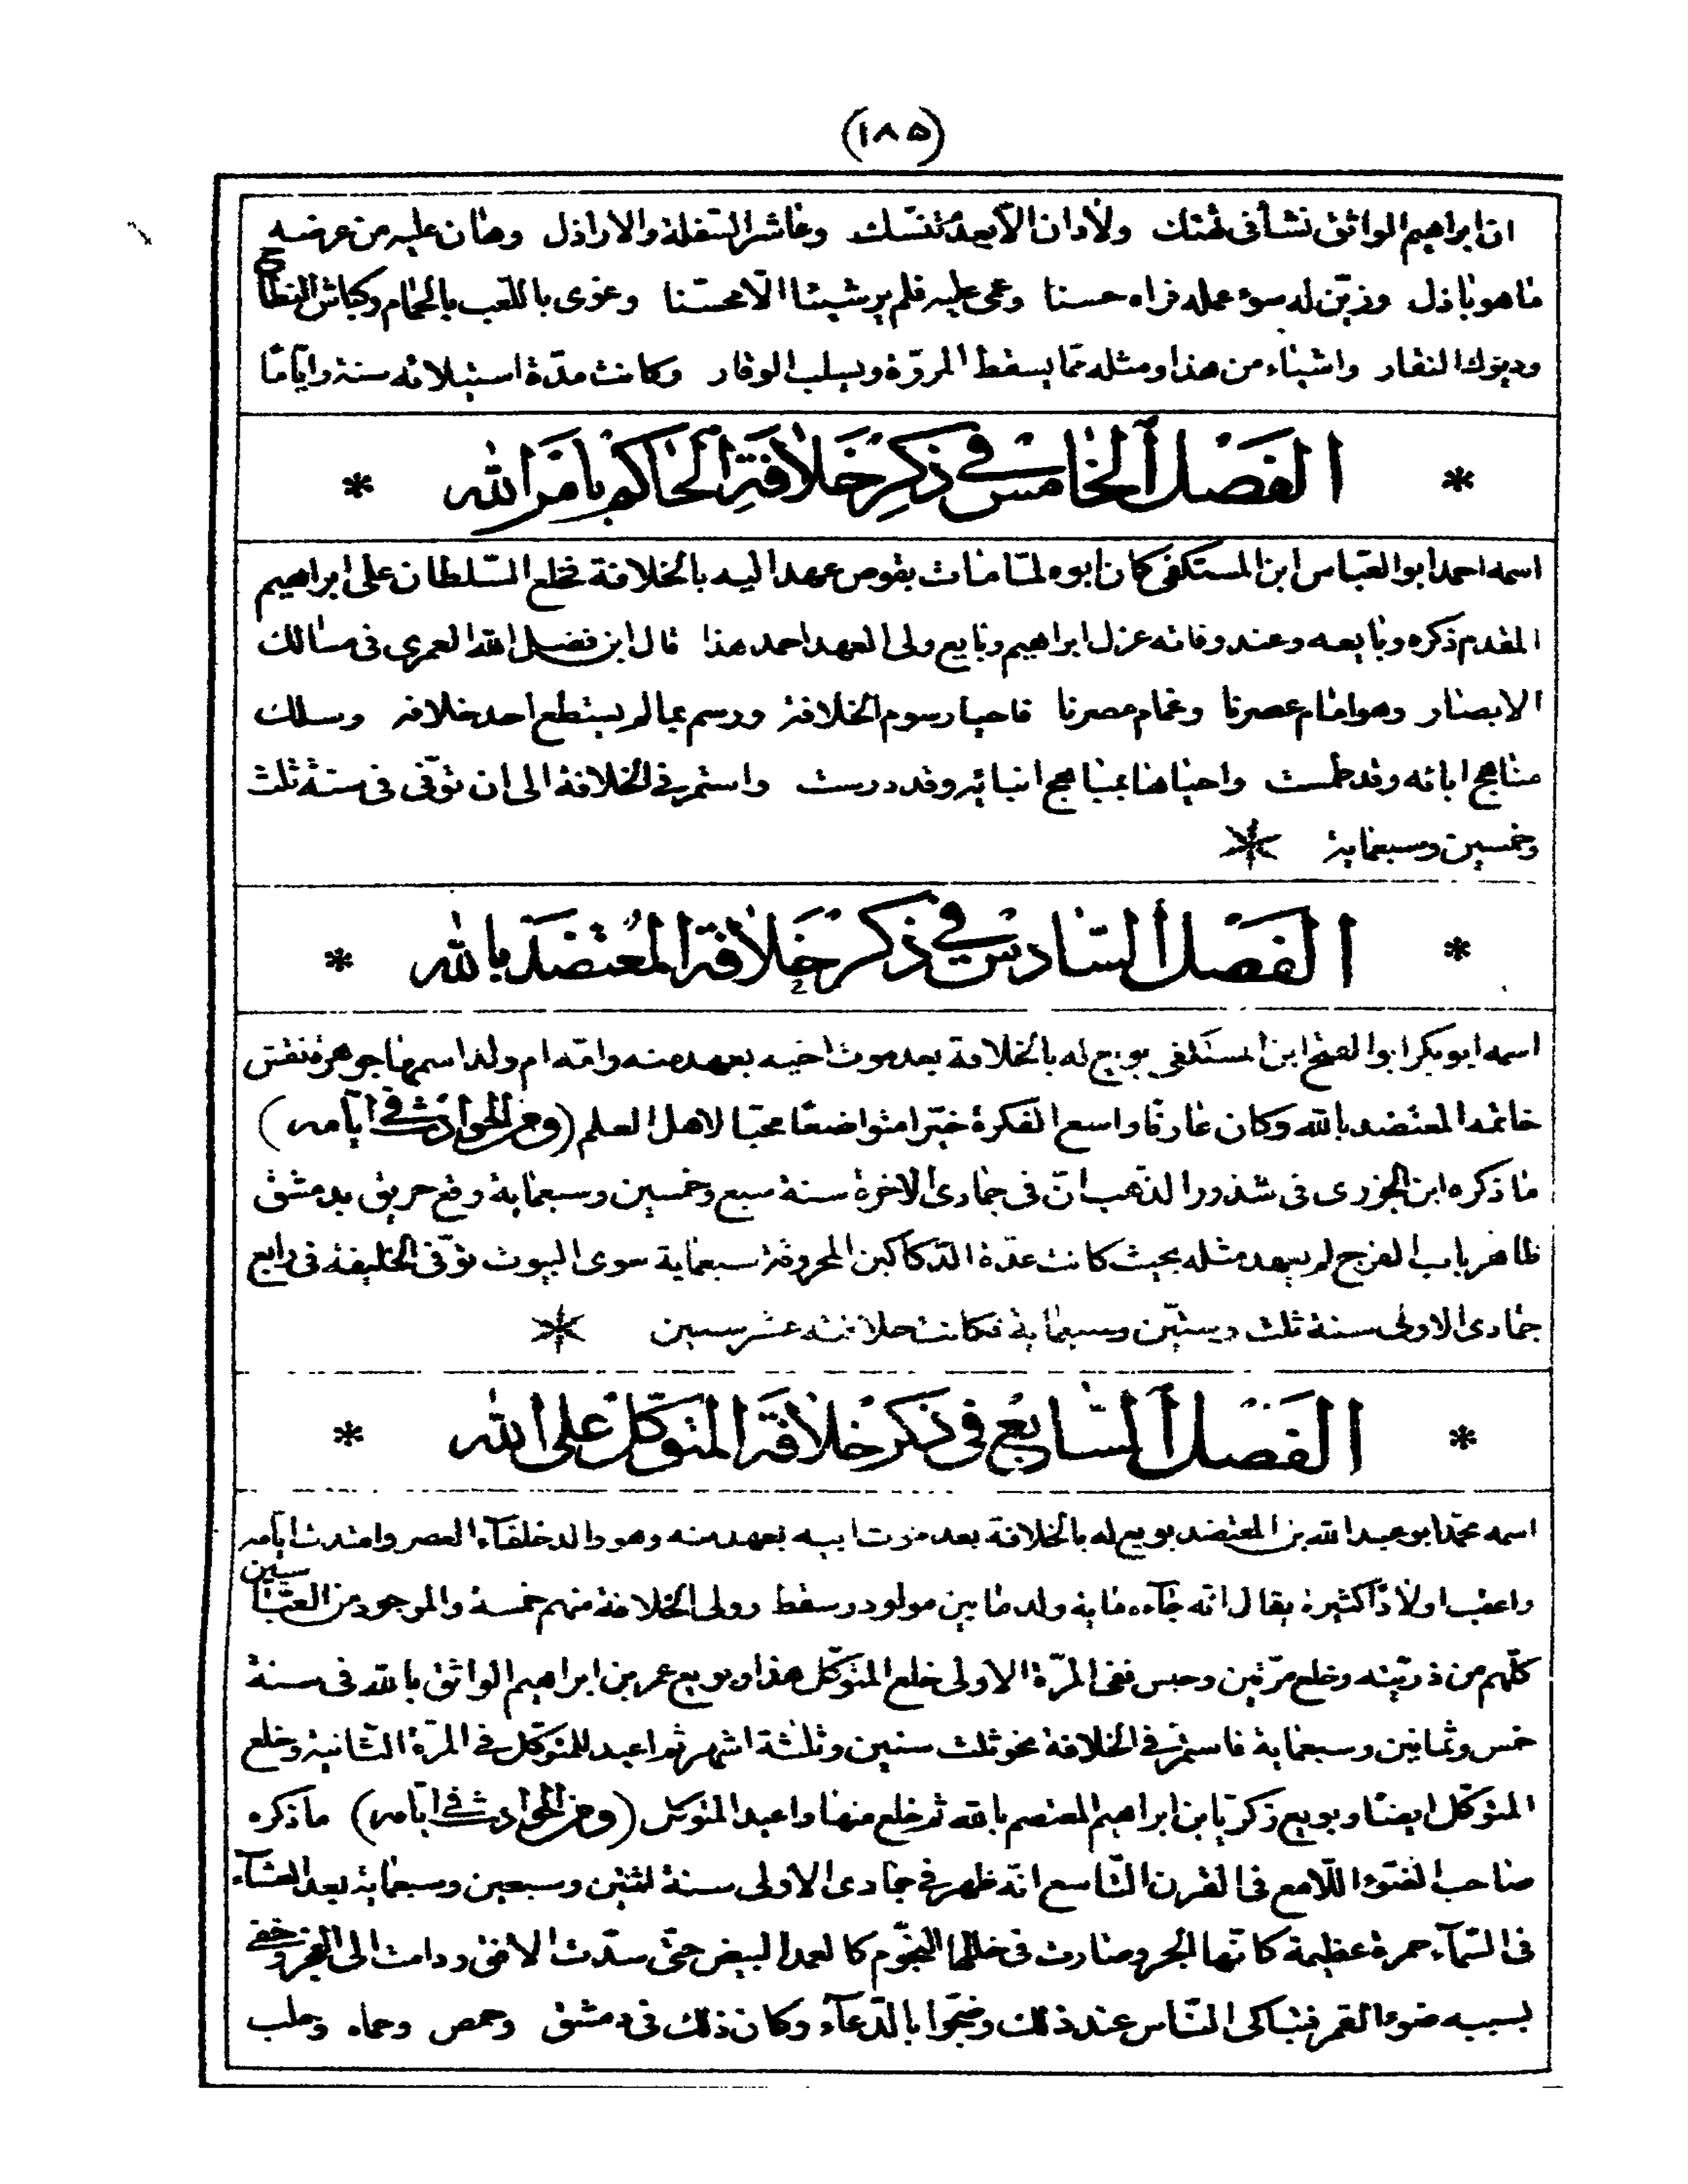 (١٨٥)
ان ابراهيم الواثق نشأ فى تهتك ولا دان الا بعد تنسك وعاشر السفلة والاراذل وهان عليه من عرضه
ما هو باذل وزين له سوء عمله فراه حسنا وعمى عليه فلم ير شيئا الا محسنا وغوى باللعب بالحمام وكباش النطاح
وديوك النقار واشياء من هذا ومثله مما يسقط المروة ويسلب الوقار وكانت مدة استيلائه سنة واياما
* الفصل الخامس في ذكر خلافة الحاكم بامر الله *
اسمه احمد ابو العباس ابن المستكفى كان ابوه لما مات بقوص عهد اليه بالخلافة فخلع السلطان على ابراهيم
المقدم ذكره وبايعه وعند وفاته عزل ابراهيم وبايع ولى العهد احمد هذا قال ابن فضل الله العمرى فى مسالك
الابصار وهو امام عصرنا وغمام مصرنا فاحيا رسوم الخلافة ورسم بما لم يستطع احد خلافه وسلك
مناهج ابائه وقد طمست واحياها بمناهج ابنائه وقد درست واستمر في الخلافة الى ان توفى فى سنة ثلث
وخمسين وسبعماية *
* الفصل السادس في ذكر خلافة المعتضد بالله *
اسمه ابو بكر ابو الفتح ابن المستكفى بويع له بالخلافة بعد موت اخيه بعهد منه وامه ام ولد اسمها جوهرة نقش
خاتمه المعتضد بالله وكان عارفا واسع الفكرة خيرا متواضعا محبا لاهل العلم (ومن الحوادث في ايامه)
ما ذكره ابن الجزرى فى شذور الذهب ان فى جمادى الاخرة سنة سبع وخمسين وسبعماية وقع حريق بدمشق
ظاهر باب الفرج لم يعهد مثله بحيث كانت عدة الدكاكين المحروقة سبعماية سوى البيوت توفى الخليفة فى رابع
جمادى الاولى سنة ثلث وستين وسبعماية فكانت خلافته عشر سنين *
* الفصل السابع فى ذكر خلافة المتوكل على الله *
اسمه محمد ابو عبد الله بن المعتضد بويع له بالخلافة بعد موت ابيه بعهد منه وهو والد خلفآء العصر وامتدت ايامه
واعقب اولادا كثيرة يقال انه جآءه ماية ولد ما بين مولود وسقط وولى الخلافة منهم خمسة والموجود من العباسيين
كلهم من ذريته وخلع مرتين وحبس ففى المرة الاولى خلع المتوكل هذا وبويع عمر بن ابراهيم الواثق بالله فى سنة
خمس وثمانين وسبعماية فاستمر في الخلافة نحو ثلث سنين وثلثة اشهر ثم اعيد للمتوكل في المرة الثانية وخلع
المتوكل ايضا وبويع زكريا بن ابراهيم المعتصم بالله ثم خلع منها واعيد المتوكل (ومن الحوادث في ايامه) ما ذكره
صاحب الضوء اللامع فى القرن التاسع انه ظهر في جمادى الاولى سنة اثنين وسبعين وسبعماية بعد العشآء
فى السمآء حمرة عظيمة كانها الجمر وصارت فى خللها النجوم كالعمد البيض حتى سدت الافق ودامت الى الفجر وخفى
بسببه ضوء القمر فتباكى الناس عند ذلك وضجوا بالدعآء وكان ذلك فى دمشق وحمص وحماه وحلب